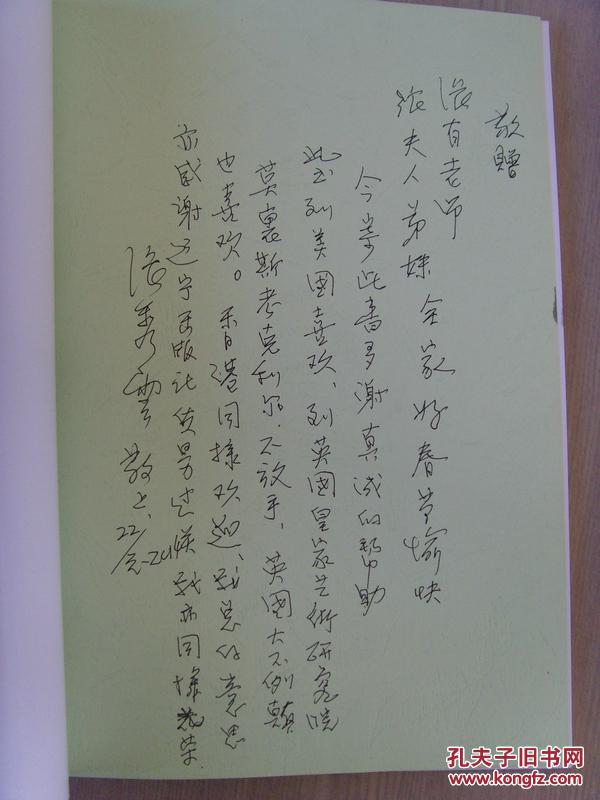 敬贈
张有老师
张夫人弟妹 全家好春节愉快
今寄此書多谢真诚的帮助
此书到美國喜欢、到英國皇家艺術研究院
莫裏斯考克利尔.不放手、英國大不列颠
也喜欢。香港同樣欢迎、我总的意思
亦感谢辽宁出版社貿易过候我亦同樣光荣.
張秀 敬上.
22/元-2014
孔夫子旧书网
www.kongfz.com